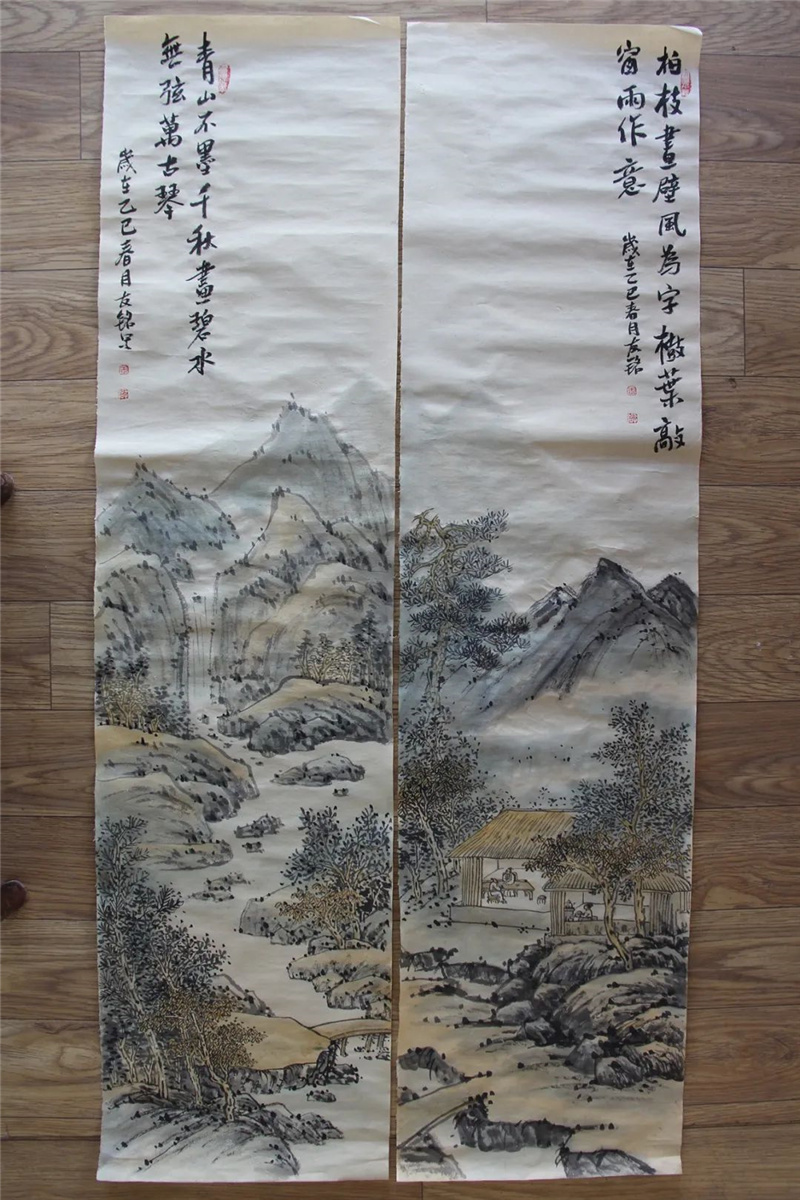 柏枝畫壁風為字檄葉敲
窗雨作意
歲在乙巳春月友銘
青山不墨千秋畫碧水
無弦萬古琴
歲在乙巳春月友銘